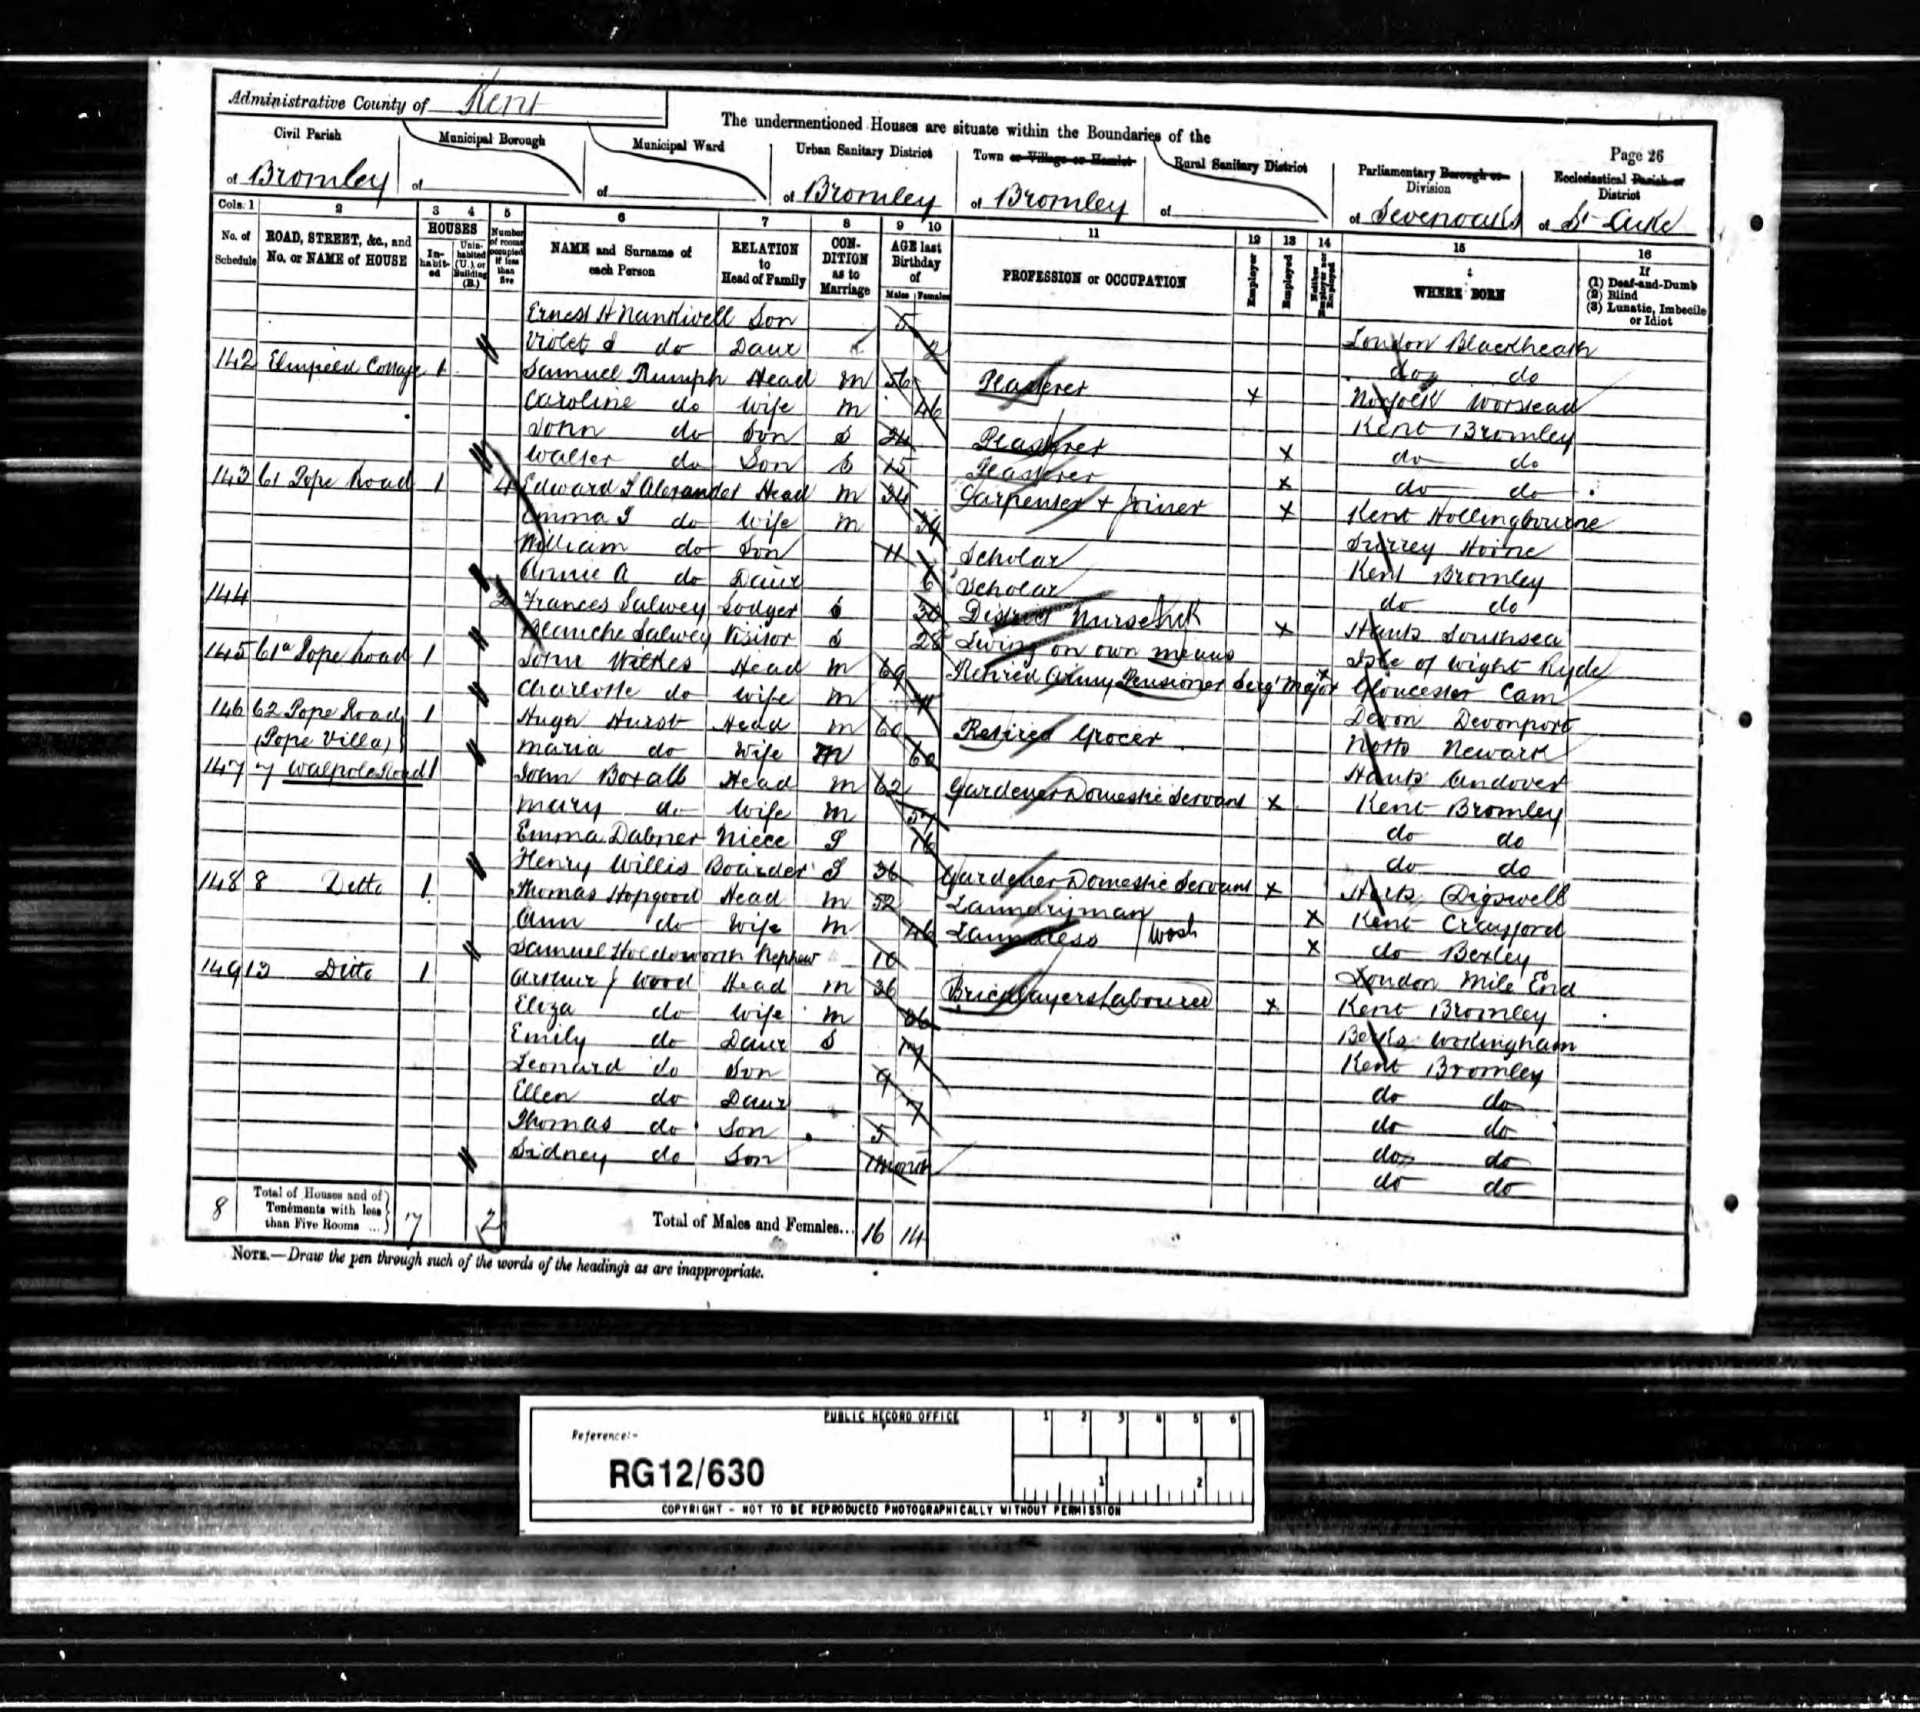 Administrative County of Kent
The undermentioned Houses are situate within the Boundaries of the
Page 26
Civil Parish Municipal Borough Municipal Ward Urban Sanitary District Town or Village or Hamlet Rural Sanitary District Parliamentary Borough or Division Ecclesiastical Parish or District
of Bromley of of of Bromley of Bromley of of Sevenoaks of St Luke
Cols. 1 2 3 4 5 6 7 8 9 10 11 12 13 14 15 16
No. of Schedule ROAD, STREET, &c., and No. or NAME of HOUSE HOUSES Inhabited Uninhabited (U.), or Building (B.) Number of rooms occupied if less than five NAME and Surname of each Person RELATION to Head of Family CONDITION as to Marriage AGE last Birthday of Males Females PROFESSION or OCCUPATION Employer Employed Neither Employer nor Employed WHERE BORN If (1) Deaf-and-Dumb (2) Blind (3) Lunatic, Imbecile or Idiot
Ernest H Nankivell Son 5 London Blackheath
Violet do Daur 2 do do
142 Elmfield Cottage 1 Samuel Rumph Head M 56 Plasterer x Norfolk Worstead
Caroline do Wife M 46 Kent Bromley
John do Son S 24 Plasterer x do do
Walter do Son S 15 Plasterer x do do
143 61 Pope Road 1 4 Edward J Alexander Head M 34 Carpenter + Joiner x Kent Hollingbourne
Emma J do Wife M 34 Surrey Horne
William do Son 11 Scholar Kent Bromley
Annie A do Daur 6 Scholar do do
144 2 Frances Salwey Lodger S 30 District Nurse Sick x Hants Southsea
Blanche Salwey Visitor S 28 Living on own means Isle of Wight Ryde
145 61a Pope Road 1 John Wilkes Head M 69 Retired Army Pensioner Sergt Major x Gloucester Cam
Charlotte do Wife M Devon Devonport
146 62 Pope Road 1 Hugh Hurst Head M 60 Retired Grocer Notts Newark
(Pope Villa) Maria do Wife M 60 Hants Andover
147 7 Walpole Road 1 John Boxall Head M 62 Gardener Domestic Servant x Kent Bromley
Mary do Wife M 57 do do
Emma Dabner Niece S 16 do do
Henry Willis Boarder S 36 Gardener Domestic Servant x Herts Digswell
148 8 Ditto 1 Thomas Hopgood Head M 52 Laundryman x Kent Crayford
Ann do Wife M 46 Laundress Wash x do Bexley
Samuel Holdsworth Nephew 10 London Mile End
149 12 Ditto 1 Arthur J Wood Head M 36 Bricklayers Labourer x Kent Bromley
Eliza do Wife M 36 Berks Wokingham
Emily do Daur S 17 Kent Bromley
Leonard do Son 9 do do
Ellen do Daur 7 do do
Thomas do Son 5 do do
Sidney do Son do do
8 Total of Houses and of Tenements with less than Five Rooms ... 7 2 Total of Males and Females... 16 14
NOTE.—Draw the pen through such of the words of the headings as are inappropriate.
PUBLIC RECORD OFFICE
1 2 3 4 5 6
Reference:-
RG12/630
1 2
COPYRIGHT - NOT TO BE REPRODUCED PHOTOGRAPHICALLY WITHOUT PERMISSION